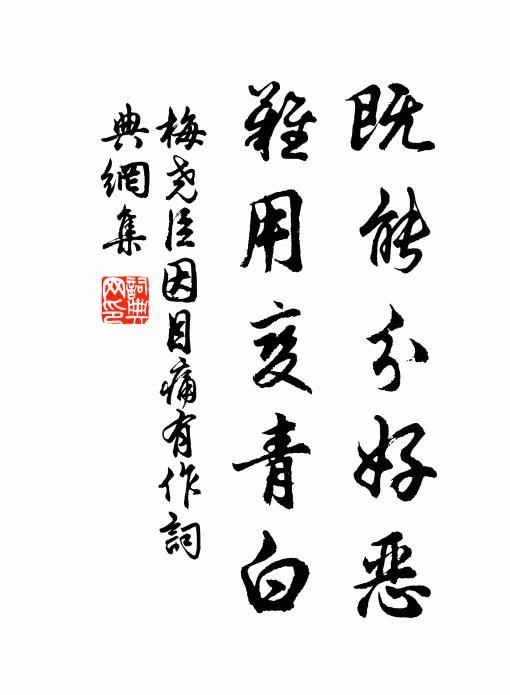 既能分好恶
难用变青白
梅尧臣因目痛有作詞
典網集
詞典网印